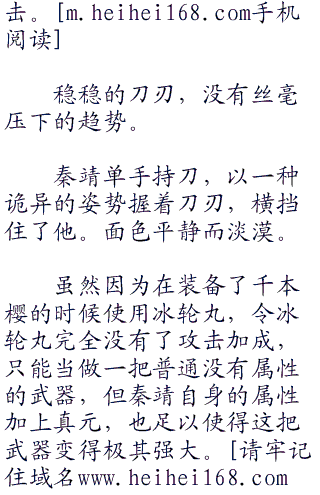 击。[m.heihei168.com手机
阅读]
稳稳的刀刃，没有丝毫
压下的趋势。
秦靖单手持刀，以一种
诡异的姿势握着刀刃，横挡
住了他。面色平静而淡漠。
虽然因为在装备了千本
樱的时候使用冰轮丸，令冰
轮丸完全没有了攻击加成，
只能当做一把普通没有属性
的武器，但秦靖自身的属性
加上真元，也足以使得这把
武器变得极其强大。[请牢记
住域名www.heihei168.com